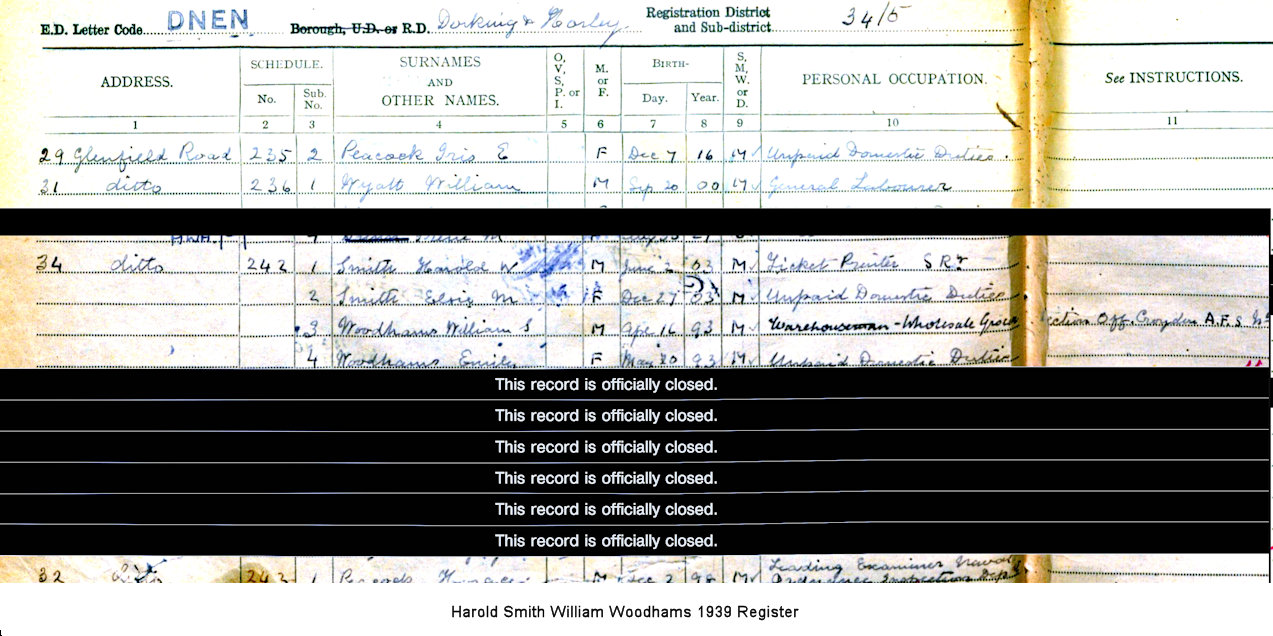 E.D. Letter Code DNEN Borough, U.D. or R.D. Dorking & Horley Registration District and Sub-district 34/5
ADDRESS. SCHEDULE. No. Sub. No. SURNAMES AND OTHER NAMES. O, V, S, P. or I. M. or F. BIRTH- Day. Year. S, M, W. or D. PERSONAL OCCUPATION. See INSTRUCTIONS.
1 2 3 4 5 6 7 8 9 10 11
29 Glenfield Road 235 2 Peacock Iris E F Dec 7 16 M Unpaid Domestic Duties.
31 ditto 236 1 Wyatt William M Sep 20 00 M General Labourer
34 ditto 242 1 Smith Harold W M June 2 03 M Ticket Printer S Rr
2 Smith Elsie M F Dec 27 03 M Unpaid Domestic Duties
3 Woodhams William S M Apr 16 93 M Warehouseman - Wholesale Groc Croydon A.F.S
4 Woodhams Emily F May 20 93 M Unpaid Domestic Duties
This record is officially closed.
This record is officially closed.
This record is officially closed.
This record is officially closed.
This record is officially closed.
This record is officially closed.
32 243 1 M Dec 2 98 M Leading Examiner Naval
Ordnance Inspection Dept
Harold Smith William Woodhams 1939 Register